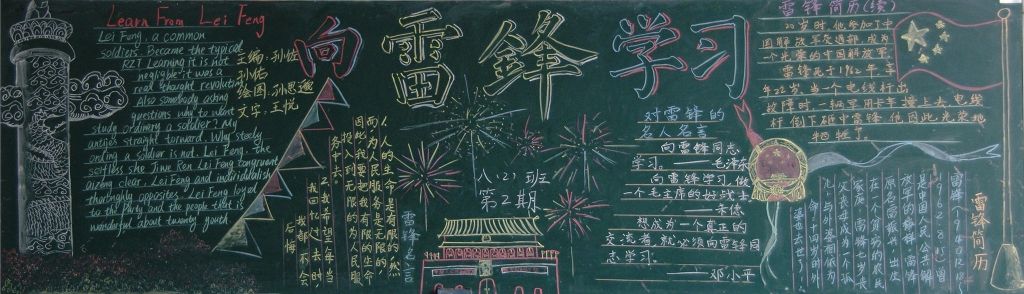 Learn From Lei Feng
Lei Feng, a common
soldiers. Became the typical
RZT Learning it is not
negligible: it was a
real thought revolution
Also somebody asking
questions why to want
study ordinary a soldier? My
answer straight forward. Why steely
ording a soldier is not. Lei Feng. The
selfless she Jine Ren Lei Feng congruent
clear. Lei Feng and individualish
thoroughly opposites. Lei Feng loyed
to the Party and the people that is
wonderful about twenty youth
主编:孙佑
孙佑
绘图:孙思邈
文字:王悦
向雷锋学习
人的生命是有限的,然
而,为人民服务是无限的,
因此,我要把我有限的生命
投入到无限的为人民服
务中去。
我希望当年
我回忆过去时,
我都不会
后悔
雷锋名言
八(2)班
第2期
对雷锋的
名人名言
向雷锋同志
学习。——毛泽东
向雷锋学习,做
个毛主席的好战士
——朱德
想成为一个真正的
交流者,就必须向雷锋同
志学习。
——邓小平
雷锋简历(续)
20岁时,他参加了中
国解放军交通部,成为
一个光荣的中国解放军。
雷锋死于1962年,享
年22岁,当一个电线杆出
故障时,一辆军用卡车撞上去,电线
杆倒下砸中雷锋,他因此光荣地
牺牲了。
雷锋简历
雷锋(1940.12.18-
1962.8.15)曾
是中国人民公共解
放军的榜样,雷锋
原名雷振兴出生
在一个贫穷的农民
家庭,雷锋七岁时
父母去世成为一个孤